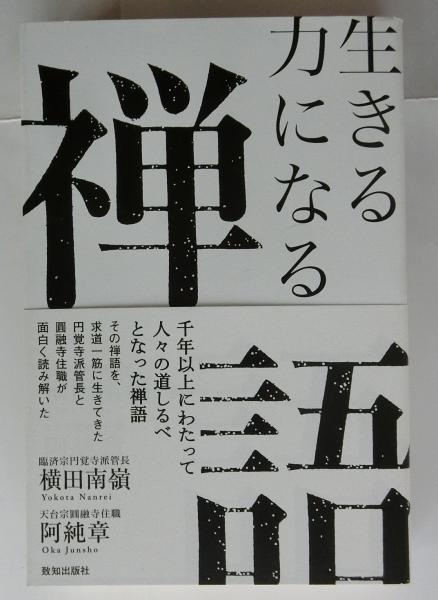 生きる
力になる
禅
語
千年以上にわたって
人々の道しるべ
となった禅語
その禅語を、
求道一筋に生きてきた
円覚寺派管長と
圓融寺住職が
面白く読み解いた
臨済宗円覚寺派管長
横田南嶺
Yokota Nanrei
天台宗圓融寺住職
阿純章
Oka Junsho
致知出版社